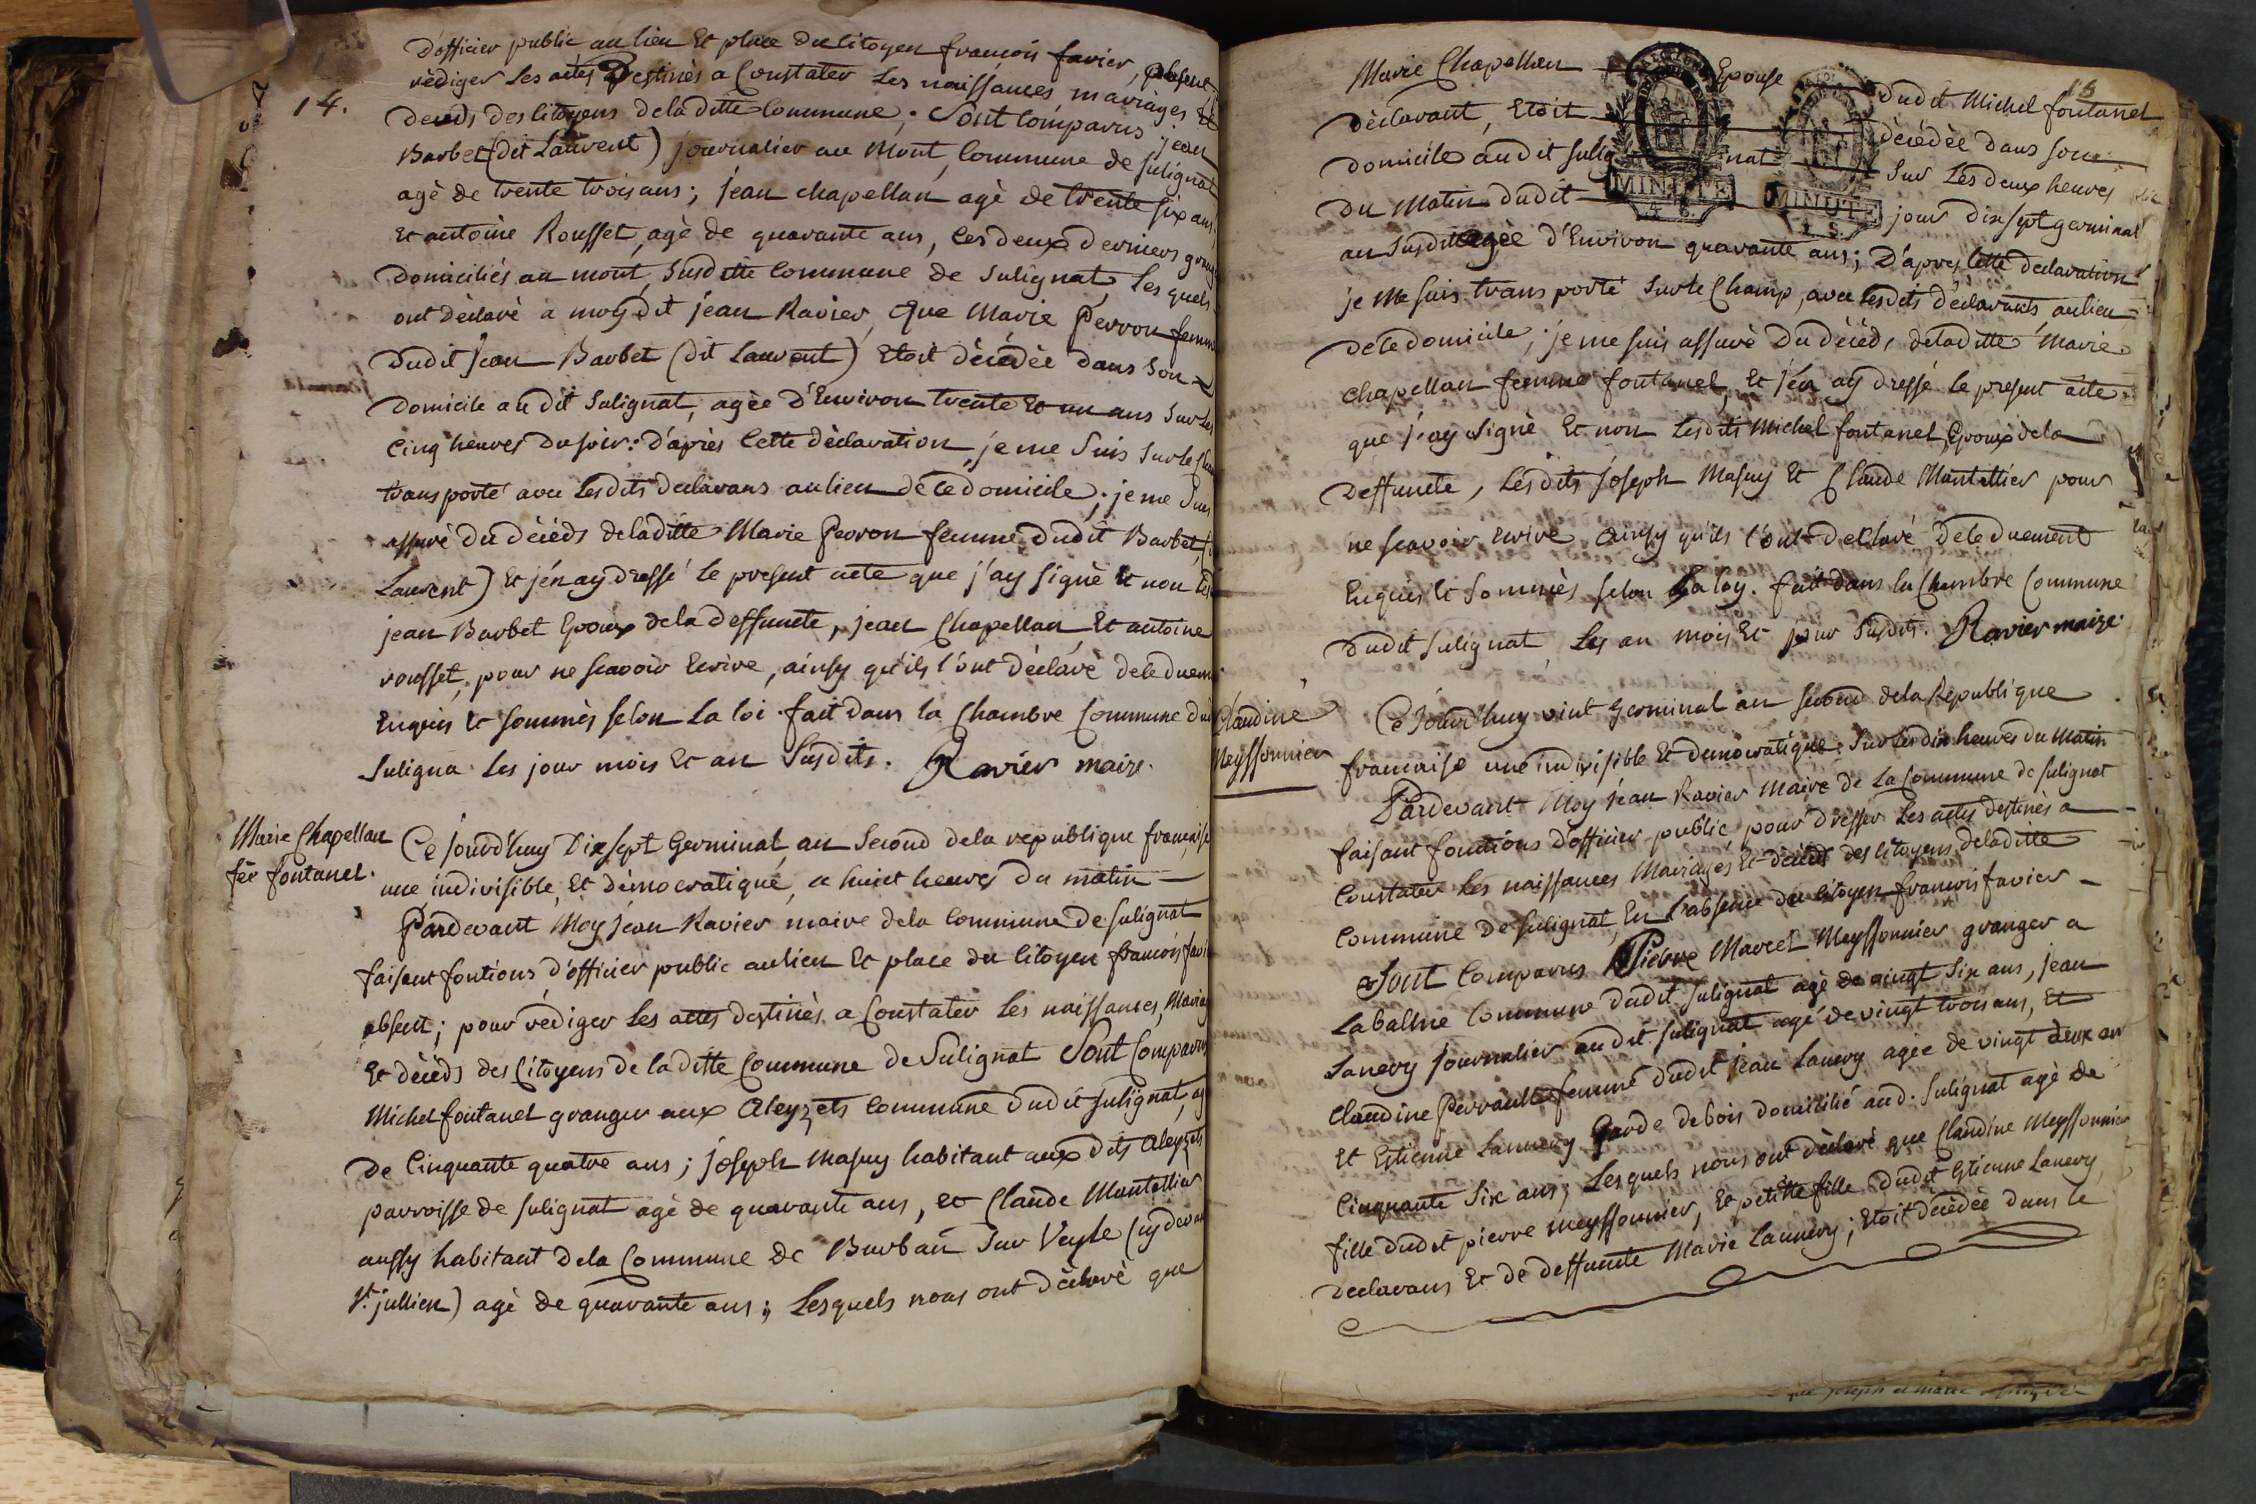 14.
D'officier public au lieu Et place du Citoyen francois favier, absent
rèdiger Les actes Destinès a Constater Les naissances, mariages Et
decèds des Citoyens de la ditte Commune; Sont Comparus jean
Barbet (dit Laurent) journalier au Mont, Commune de sulignat
agè de trente trois ans; jean chapellan agè de trente six ans
Et antoine Rousset, agè de quarante ans, les deux derniers
Domiciliés au mont, susditte Commune de Sulignat, Lesquels
ont dèclaré a moy dit jean Ravier, que Marie Perron femme
Dudit jean Barbet (dit Laurent) Etoit dècèdèe dans son
Domicile au dit Sulignat, agèe d'Environ trente Et un ans sur les
Cinq heures du soir: D'après Cette dèclaration, je me Suis sur le
transporté avec Lesdits declarans au lieu de ce domicile; je me Suis
assuré du dècèds de laditte Marie Perron femme dudit Barbet
Laurent) Et j'en ay dressé le present acte que j'ay signè et non
jean Barbet Epoux de la deffuncte, jean Chapellan, Et antoine
rousset, pour ne scavoir Ecrire, ainsy qu'ils l'ont dèclaré de ce
Enquis Et sommès selon La loi. fait dans la Chambre Commune du
Suligna Les jour mois Et an Susdits. Ravier maire.
Marie Chapellan
fe fontanel.
Ce jourd'huy Dix sept Germinal, an Second de la republique francaise
une indivisible, Et dèmocratique, a huict heures du matin
Pardevant Moy jean Ravier maire de la Commune de sulignat
faisant fontions d'officier public au lieu Et place du Citoyen francois
absent; pour rèdiger Les actes destinès a Constater Les naissances,
Et dècèds des Citoyens de la ditte Commune de Sulignat Sont Comparus
Michel fontanel granger aux Aleyzets Commune dudit sulignat,
de Cinquante quatre ans; joseph masuy habitant aux dits Aleyzets
parroisse de sulignat agè de quarante ans, et Claude Montellier
aussy habitant de la Commune de Burban Sur Veyle (cydevant
St. jullien) agè de quarante ans; Lesquels nous ont dèclaré que
15
Marie Chapellan Epouse dudit Michel fontanel
Dèclarant, Etoit dècèdèe dans son
Domicile audit sulignat sur Les deux heures
Du Matin dudit jour dix sept germinal
MINUTE
MINUTE
an susdit agèe d'Environ quarante ans; D'après Cette declaration
je me suis transporté sur le Champ, avec lesdits dèclarants au lieu
de ce domicile; je me suis assurè du dècèds de laditte Marie
chapellan femme fontanel, et j'en ay dressé le present acte
que j'ay signè Et non lesdits Michel fontanel, Epoux de la
deffuncte, Lesdits joseph Masuy Et Claude Montellier pour
ne scavoir Ecrire ainsy qu'ils l'ont declaré de ce duement
Enquis Et Sommès selon La loy. fait dans la Chambre Commune
dudit sulignat, Les an mois Et jour susdits. Ravier maire
Claudine
Meyssonnier
Ce jourd'huy vint Germinal an second de la Republique
francaise une indivisible Et democratique, sur les dix heures du matin
Pardevant Moy jean Ravier Maire de La Commune de sulignat
faisant fonctions d'officier public pour dresser Les actes destinès a
Constater Les naissances Mariages Et dècès des Citoyens de laditte
Commune de sulignat, En l'absence du Citoyen francois favier
Sont Comparus Pierre Marcel Meyssonnier granger a
Labalme Commune dudit sulignat agè de vingt six ans, jean
Lanery journalier audit sulignat agé de vingt trois ans, Et
Claudine Perrault femme dudit jean Lanery agèe de vingt deux an
Et Etienne Lannery Garde de bois domicilié aud. Sulignat agè de
Cinquante Six ans; Lesquels nous ont dèclarè que Claudine Meyssonnier
fille dudit pierre Meyssonnier, Et petitte fille dudit Etienne Lanery
declarans Et de deffuncte Marie Lannery; Etoit dècèdèe dans le